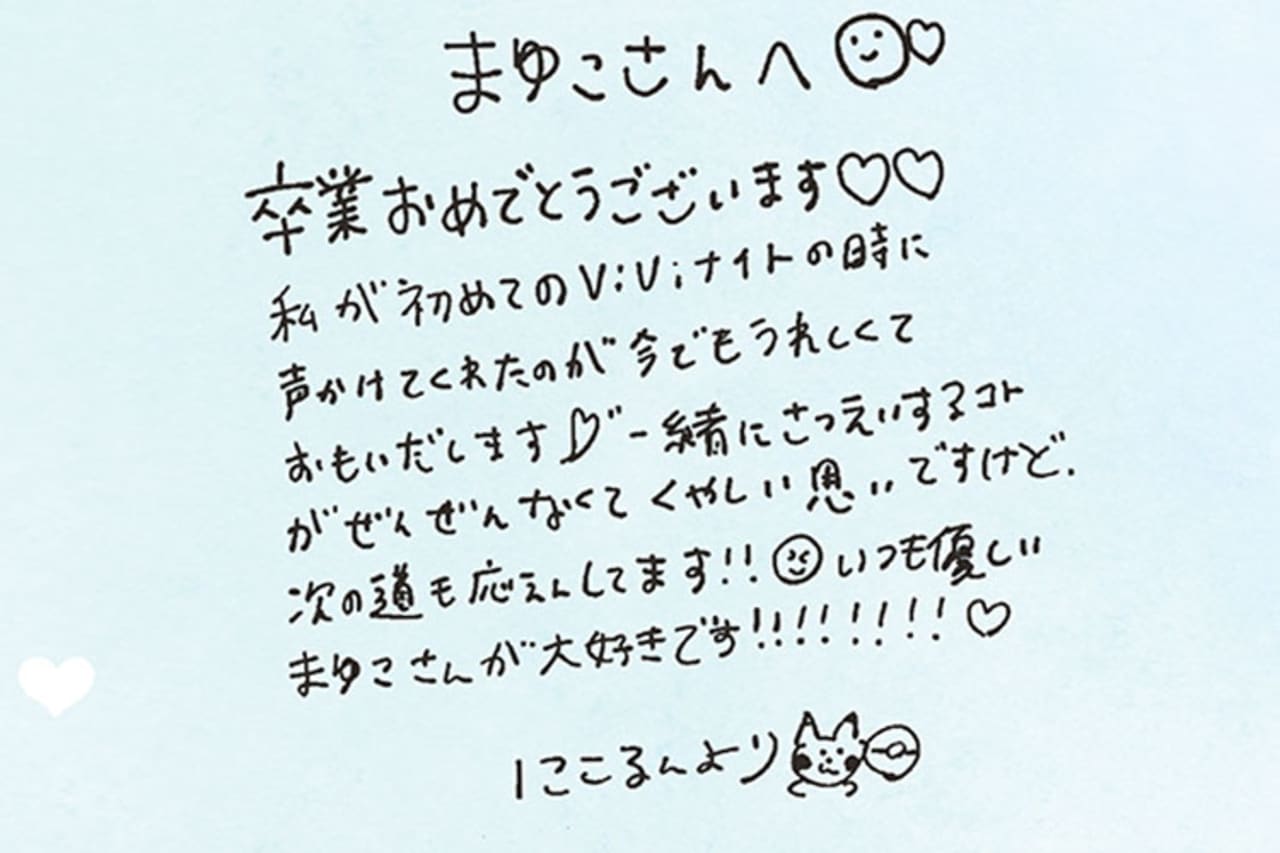 まゆこさんへ
卒業おめでとうございます♡♡
私が初めてのViViナイトの時に
声かけてくれたのが今でもうれしくて
おもいだします♡゛一緒にさつえいするコト
がぜんぜんなくてくやしい思いですけど.
次の道も応えんしてます!!いつも優しい
まゆこさんが大好きです!!!!!!!!♡
にこるんより